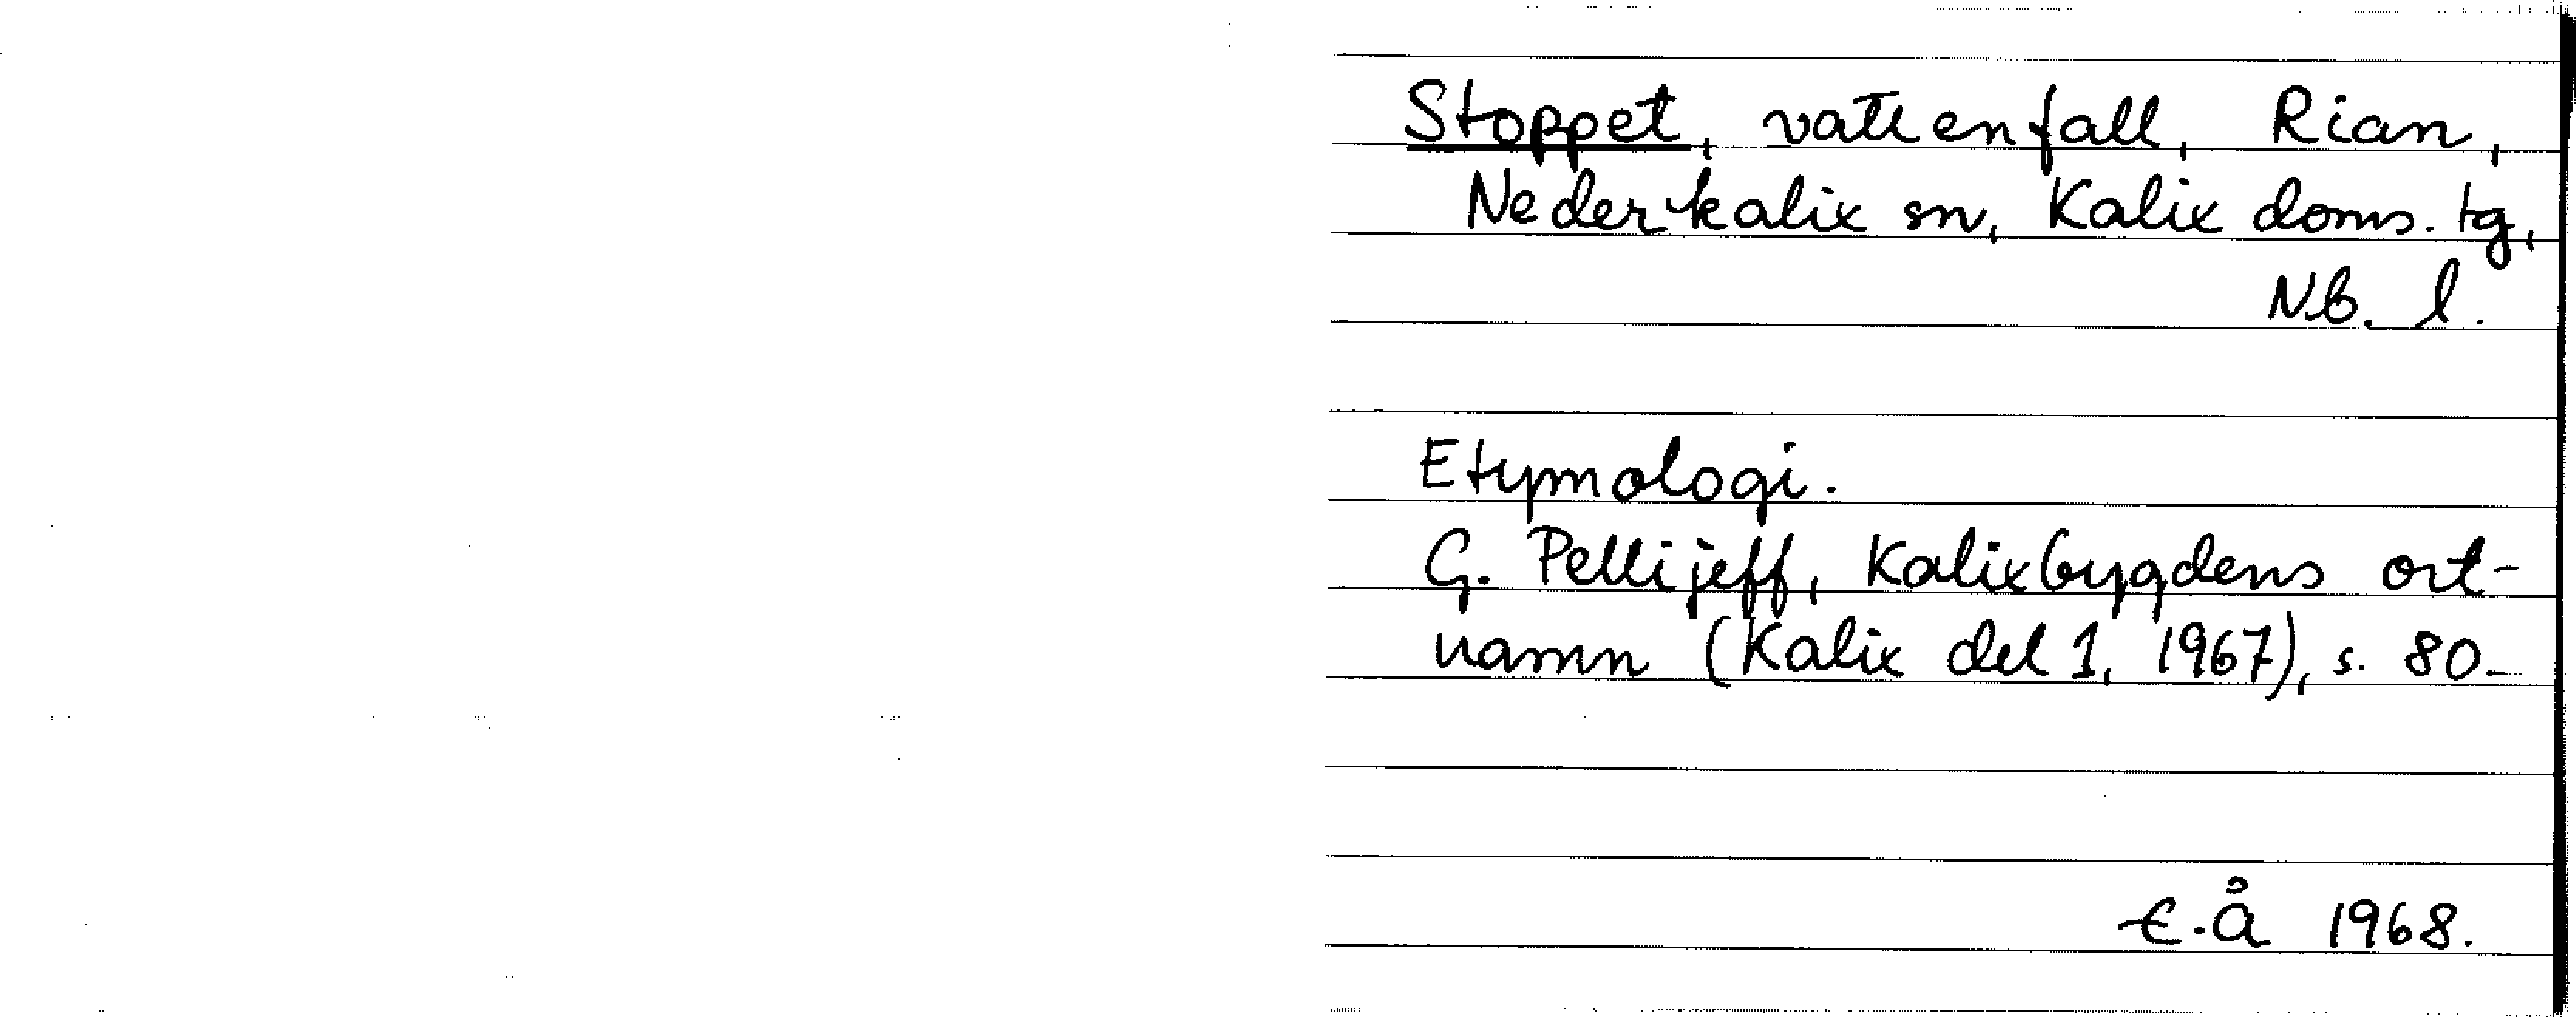 Stoppet, vattenfall, Rian,
Nederkalix sn, Kalix doms. tg,
Nb. l.
Etymologi.
G. Pellijeff, Kalixbygdens ort-
namn (Kalix del 1, 1967), s. 80.
E.Å 1968.